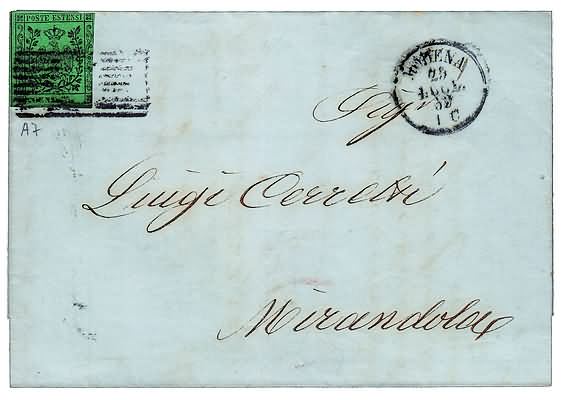 POSTE ESTENSI
A7
MODENA
29
LUGL
52
Sigr
Luigi Cerretti
Mirandola